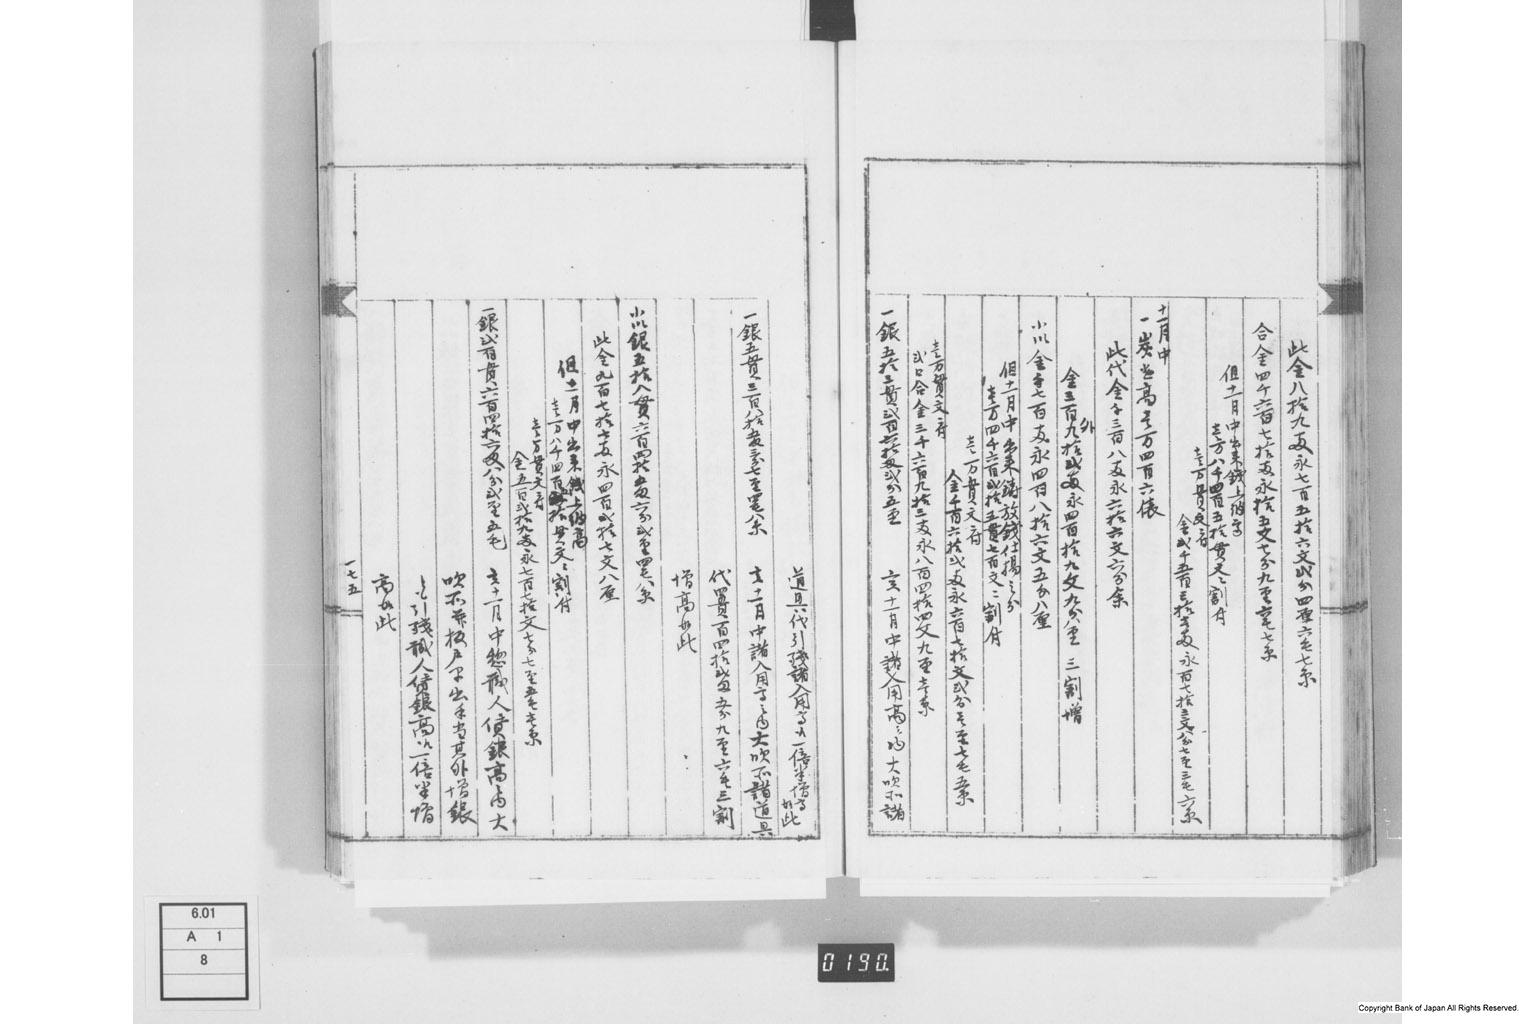 此金八拾九両永七百五拾六文弐分四厘六毛七糸
合金四千六百七拾両永拾五文七分九厘壱毛七糸
但十一月中出来銭上納高
壱万八千四百五拾貫文ニ割付
壱万貫文ニ付
金弐千五百三拾壱両永百七拾三文八分七厘三毛六糸
十一月中
一炭惣高壱万四百六俵
此代金千三百八両永六拾六文六分余
外
金三百九拾弐両永四百拾九文九分八厘 三割増
小以金千七百両永四百八拾六文五分八厘
但十一月中出来鋳放銭仕揚之分
壱万四千六百弐拾五貫七百文ニ割付
壱万貫文ニ付
金千百六拾弐両永六百七拾文弐分壱厘七毛五糸
壱万貫文ニ付
弐口合金三千六百九拾三両永八百四拾四文九厘壱糸
一銀五拾三貫弐百六拾匁弐分五厘 亥十一月中諸入用高之内大吹所諸
道具代引残諸入用高江一倍半増高如此
一銀五貫三百八拾五匁三分七厘四毛八糸 亥十一月中諸入用高之内大吹所諸道具
代四貫百四拾弐匁五分九厘六毛三割
増高如此
小以銀五拾八貫六百四拾五匁六分弐厘四毛八糸
此金九百七拾七両永四百弐拾七文八厘
但十一月中出来銭上納高
壱万八千四百五拾貫文ニ割付
壱万貫文ニ付
金五百弐拾九両永七百七拾文七分七厘五毛壱糸
一銀弐百貫六百四拾六匁八分弐厘五毛 亥十一月中惣職人賃銀高之内大
吹所并板戸平出来方其外増銀
之引残職人賃銀高江一倍半増
高如此
一七五
6.01
A 1
8
0190.
Copyright Bank of Japan All Rights Reserved.